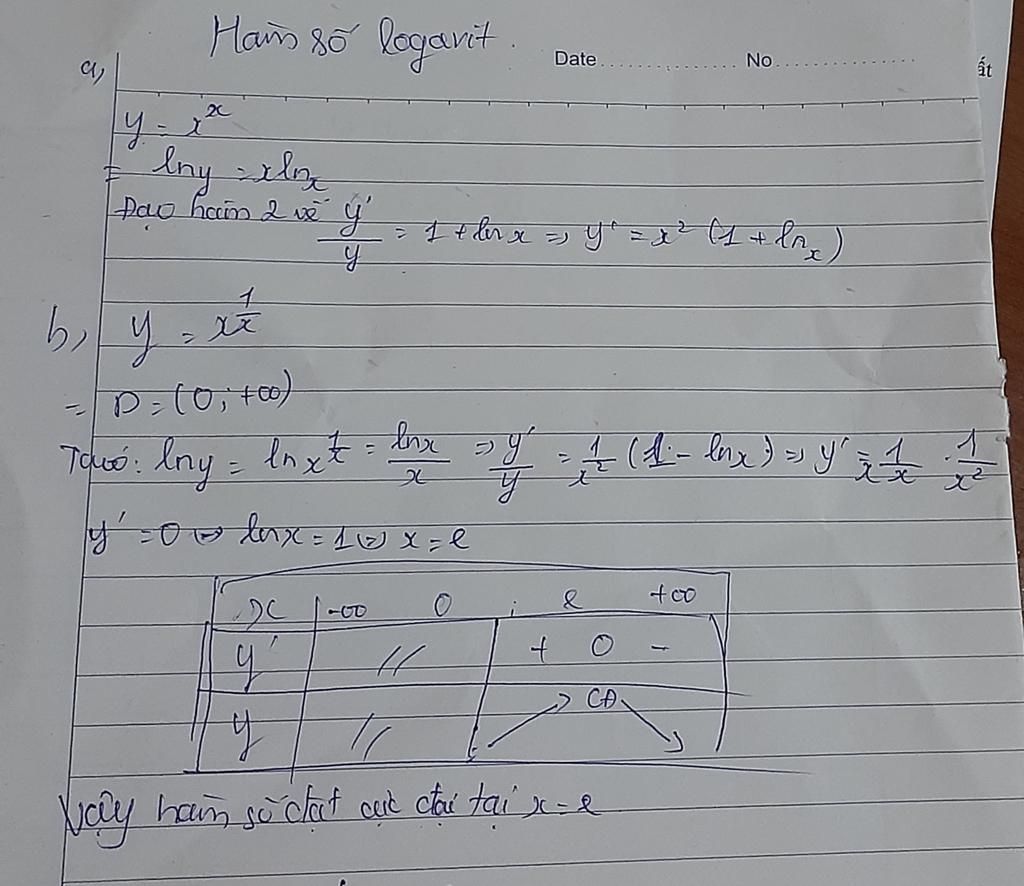 Hàm số logarit.
Date.............. No...............
ất
a,
y = x^x
= lny = xlnx
Đạo hàm 2 vế y'/y = 1 + lnx => y' = x² (1 + lnx)
b, y = x^(1/x)
= D = (0; +∞)
Ta có: lny = lnx^(1/x) = lnx/x => y'/y = 1/x² (1 - lnx) => y' = x^(1/x) . 1/x²
y' = 0 <=> lnx = 1 <=> x = e
x -∞ 0 e +∞
y' // + 0 -
y // CĐ
Vậy hàm số đạt cực đại tại x = e